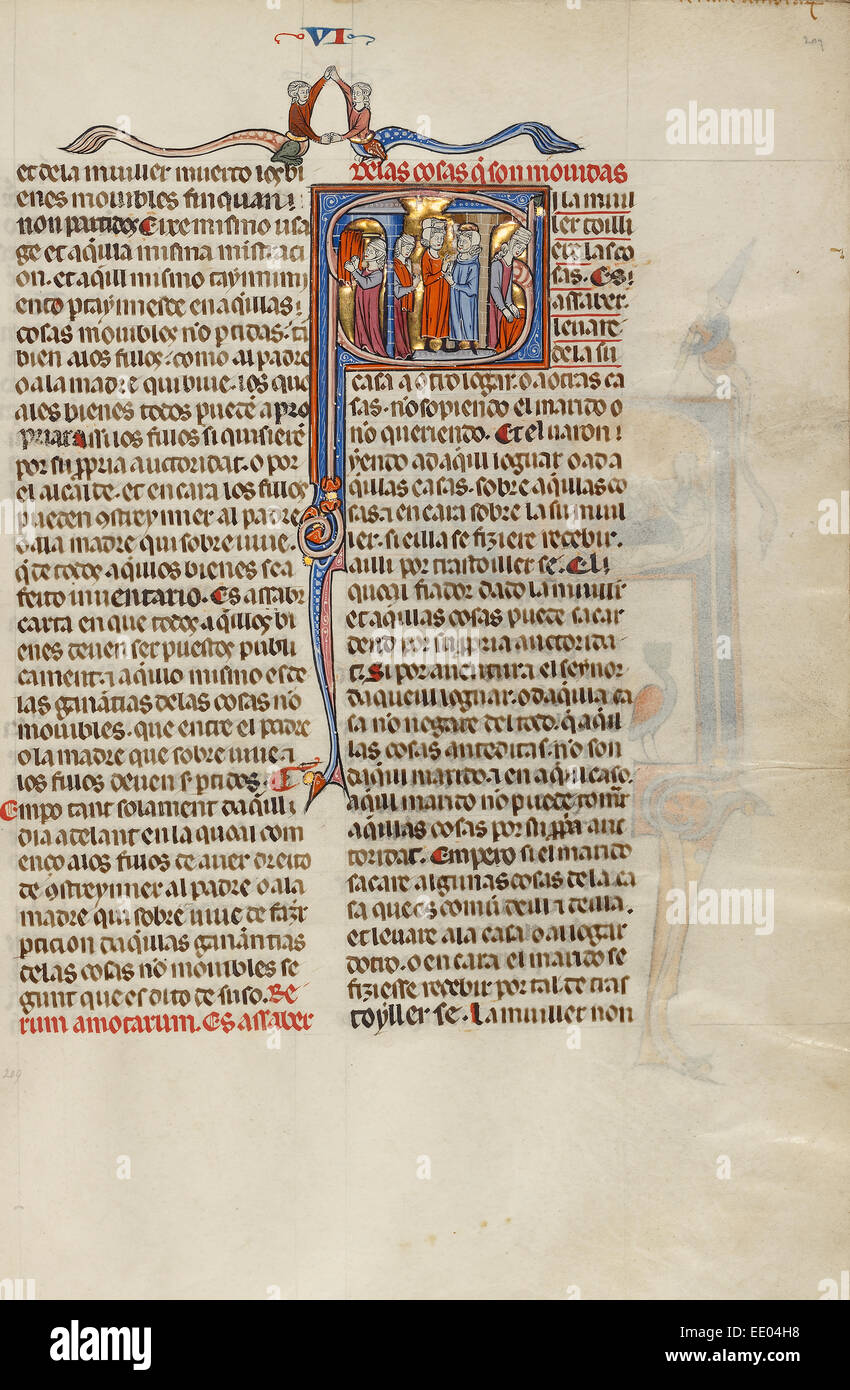 VI
209
et dela muiller muerto los bi
enes mouibles finquan ⁊
non partidos. Eixe mismo usa
ge et aq̃lla misma
on. et aq̃ll mismo
en aq̃llas ⁊
cosas mouibles no ꝑtidas. tã
bien alos fillos. como al padre
o ala madre qui biue. los qua
ales bienes todos puede apro
priar assi los fillos si quisierẽ
por su ppria auctoridat. o por
el alcalde. et en cara los fillos
pueden ꝯstreynner al padre
o ala madre qui sobre uiue.
q̃ de todos aq̃llos bienes sea
feito inuentario. Es assabr
carta en que todos aq̃llos bi
enes deuen ser puestos publi
cament. a aq̃llo mismo es de
las ganãtias delas cosas no
mouibles. que entre el padre
o la madre que sobre uiue. a
los fillos deuen s ꝑtidos.
Empo tant solament daq̃ll
dia adelant en la quoal com
enço alos fillos de auer dreito
de ꝯstreynner al padre o ala
madre qui sobre uiue de fazr
ꝑticion daq̃llas ganãntias
delas cosas nõ mouibles se
gunt que es dito de suso. Re
rum amotarum. Es assaber
209
delas cosas q̃ son mouidas
i la muil
ler toilli
ere las co
sas. Es
assaber
leuare
de la su
casa a otro logar. o a otras ca
sas. no sopiendo el marido o
no queriendo. Et el uaron
yendo ad aq̃ll logar o ad a
q̃llas casas. sobre aq̃llas co
sas a en cara sobre la su muil
ler. si ella se fiziere recebir.
ailli por trastoiller se. Eli
quoal fiador dado la muiller
et aq̃llas cosas puede sacar
dend por su ppria auctorida
t. Si por auentura el seynor
daquell loguar. o daq̃lla ca
sa no negare del todo. q̃ aq̃l
las cosas ante ditas. no son
daqll marido. a en aq̃ll caso.
aqll marido no puede tomar
aq̃llas cosas por su ppa auc
toridat. Empero si el marido
sacare algunas cosas de la ca
sa que es comũ dell a della.
et leuare a la casa o al logar
dotro. o en cara el marido se
fiziesse recebir por tal de tras
toyller se. La muiller non
alamy
Image ID: EE04H8
www.alamy.com